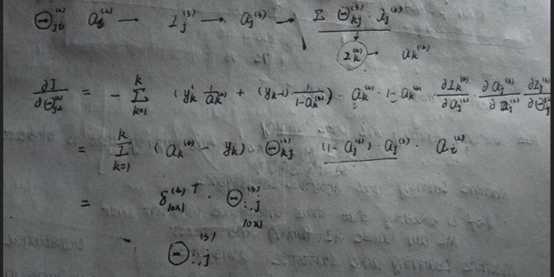 Θ_{ji}^{(2)} a_i^{(2)} → z_j^{(3)} → a_j^{(3)} → Σ Θ_{kj}^{(3)} · a_j^{(3)}
z_k^{(4)} → a_k^{(4)}
∂J/∂Θ_{ji}^{(2)} = - Σ_{k=1}^{K} (y_k 1/a_k^{(4)} + (y_k - 1) 1/(1-a_k^{(4)})) · a_k^{(4)} · 1 - a_k^{(4)} · ∂z_k^{(4)}/∂a_j^{(3)} · ∂a_j^{(3)}/∂z_j^{(3)}
= Σ_{k=1}^{K} (a_k^{(4)} - y_k) Θ_{kj}^{(3)} (1 - a_j^{(3)}) a_j^{(3)} · a_i^{(2)}
= δ^{(4)T}_{10×1} · Θ_{:,j}^{(3)}
10×1
Θ_{:,j}^{(3)}